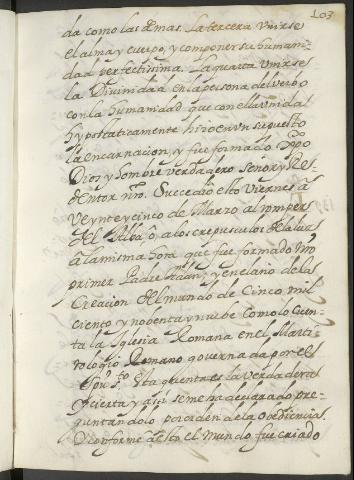 103
da como las demas. La tercera vnirse
el alma y cuerpo, y componer su humani-
dad perfectissima. La quarta vnirse
la Diuinidad en la persona del verbo
con la humanidad que con ella vnida
hypostaticamente hizo en vn supuesto
la encarnacion, y fue formado Xpo
Dios y hombre verdadero señor y Re-
dentor nro. Succedio esto Viernes a
veynte y cinco de Marzo al romper
del Alba, o a los crepusculos de la luz
a la misma hora que fue formado nro
primer Padre Adan; y en el año de la
Creacion del mundo de Cinco mil
ciento y nobenta y nuebe como lo cuen-
ta la Iglesia Romana en el Marti-
rologio Romano gouernada por el
Spu. sto. Esta quenta es la verdadera
y cierta y assi se me ha declarado pre-
guntandolo por orden de la obediencia.
Y conforme a esto el mundo fue criado